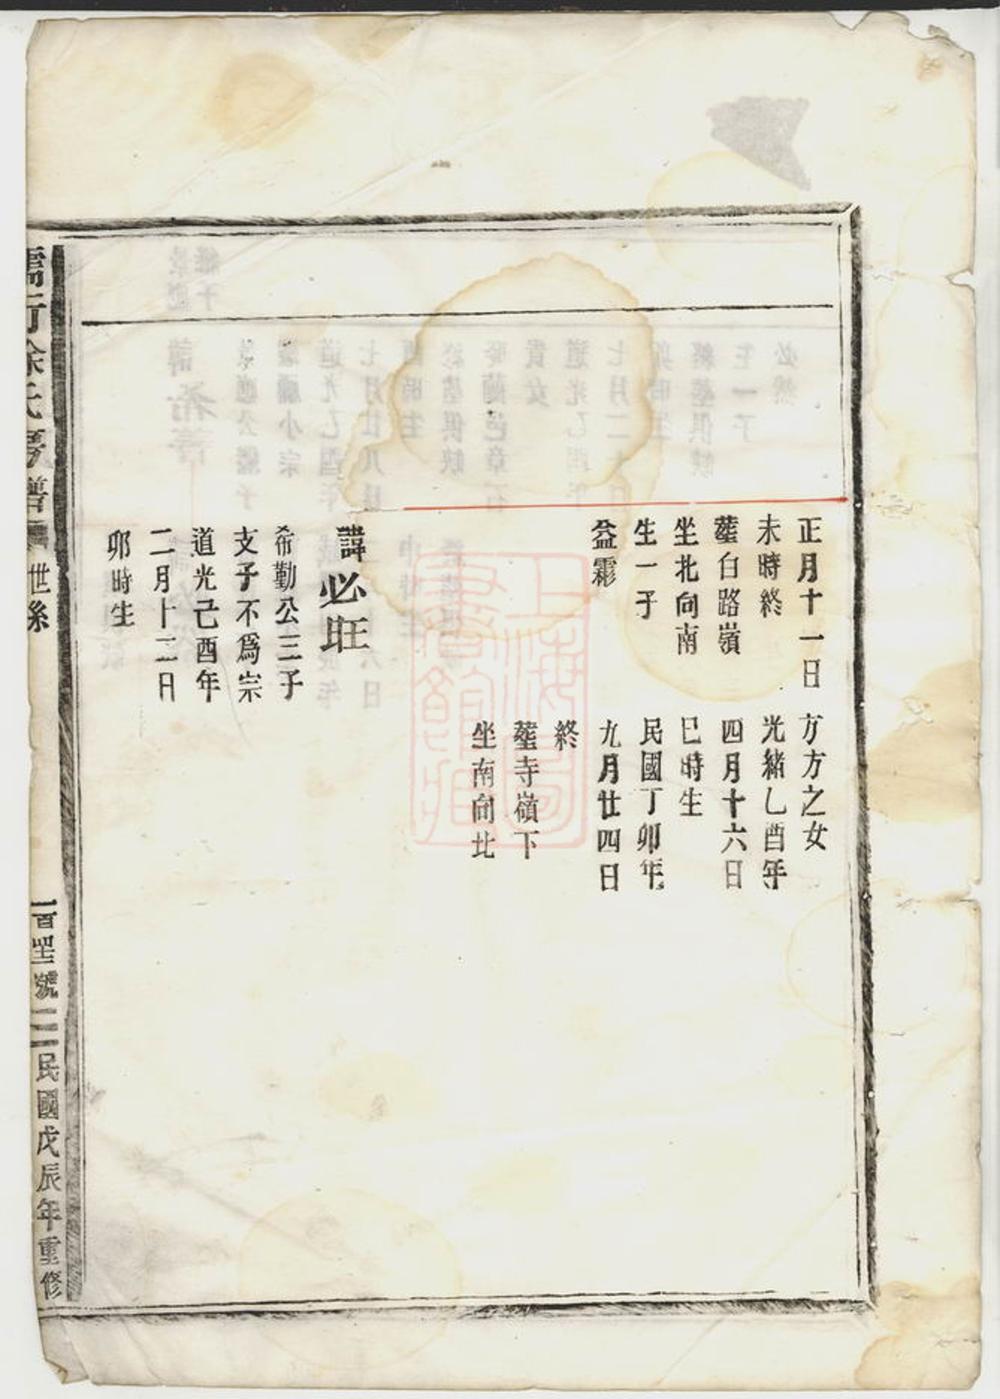 正月十一日
未時終
塟白路嶺
坐北向南
生一子
益彰
諱必旺
希勤公三子
支子不爲宗
道光己酉年
二月十二日
卯時生
方方之女
光緒乙酉年
四月十六日
巳時生
民國丁卯年
九月廿四日
終
塟寺嶺下
坐南向北
儒行徐氏宗譜
世系
號
民國戊辰年重修
上海圖書館藏